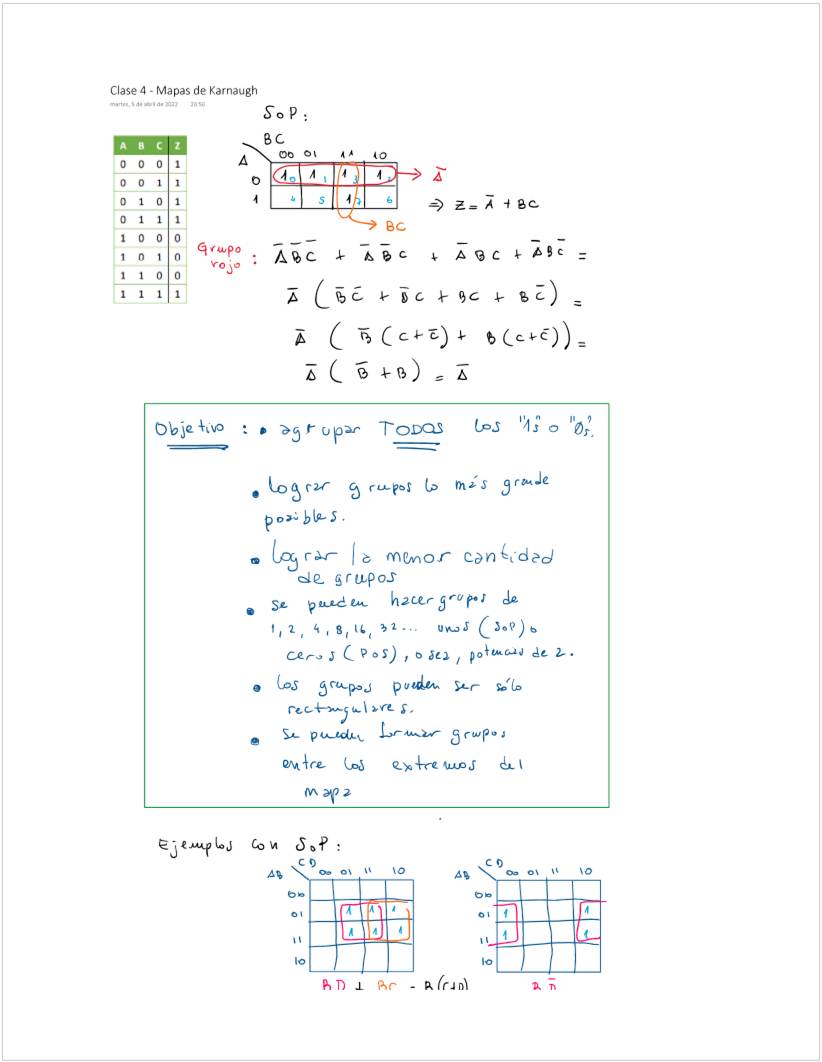 Clase 4 - Mapas de Karnaugh
martes, 5 de abril de 2022 20:50
SoP:
BC
A 00 01 11 10
0 1 0 1 1 1 3 1 2 → Ā
1 4 5 1 7 6 ⇒ Z = Ā + BC
→ BC
A B C Z
0 0 0 1
0 0 1 1
0 1 0 1
0 1 1 1
1 0 0 0
1 0 1 0
1 1 0 0
1 1 1 1
Grupo rojo : Ā B̄ C̄ + Ā B̄ C + Ā B C + Ā B C̄ =
Ā ( B̄ C̄ + B̄ C + B C + B C̄ ) =
Ā ( B̄ ( C + C̄ ) + B ( C + C̄ ) ) =
Ā ( B̄ + B ) = Ā
Objetivo : • agrupar TODOS los "1s" o "0s".
• lograr grupos lo más grande
posibles.
• lograr la menor cantidad
de grupos
• se pueden hacer grupos de
1, 2, 4, 8, 16, 32... unos (SoP) o
ceros (PoS), o sea, potencias de 2.
• los grupos pueden ser sólo
rectangulares.
• se pueden formar grupos
entre los extremos del
mapa
Ejemplos con SoP :
CD
AB 00 01 11 10
00
01 1 1 1
11 1 1 1
10
BD + BC = B(C+D)
CD
AB 00 01 11 10
00
01 1 1
11 1 1
10
B D̄